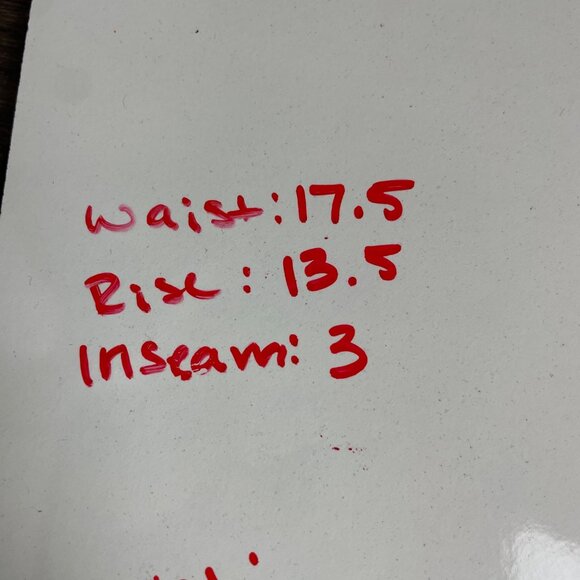 Waist: 17.5
Rise: 13.5
Inseam: 3